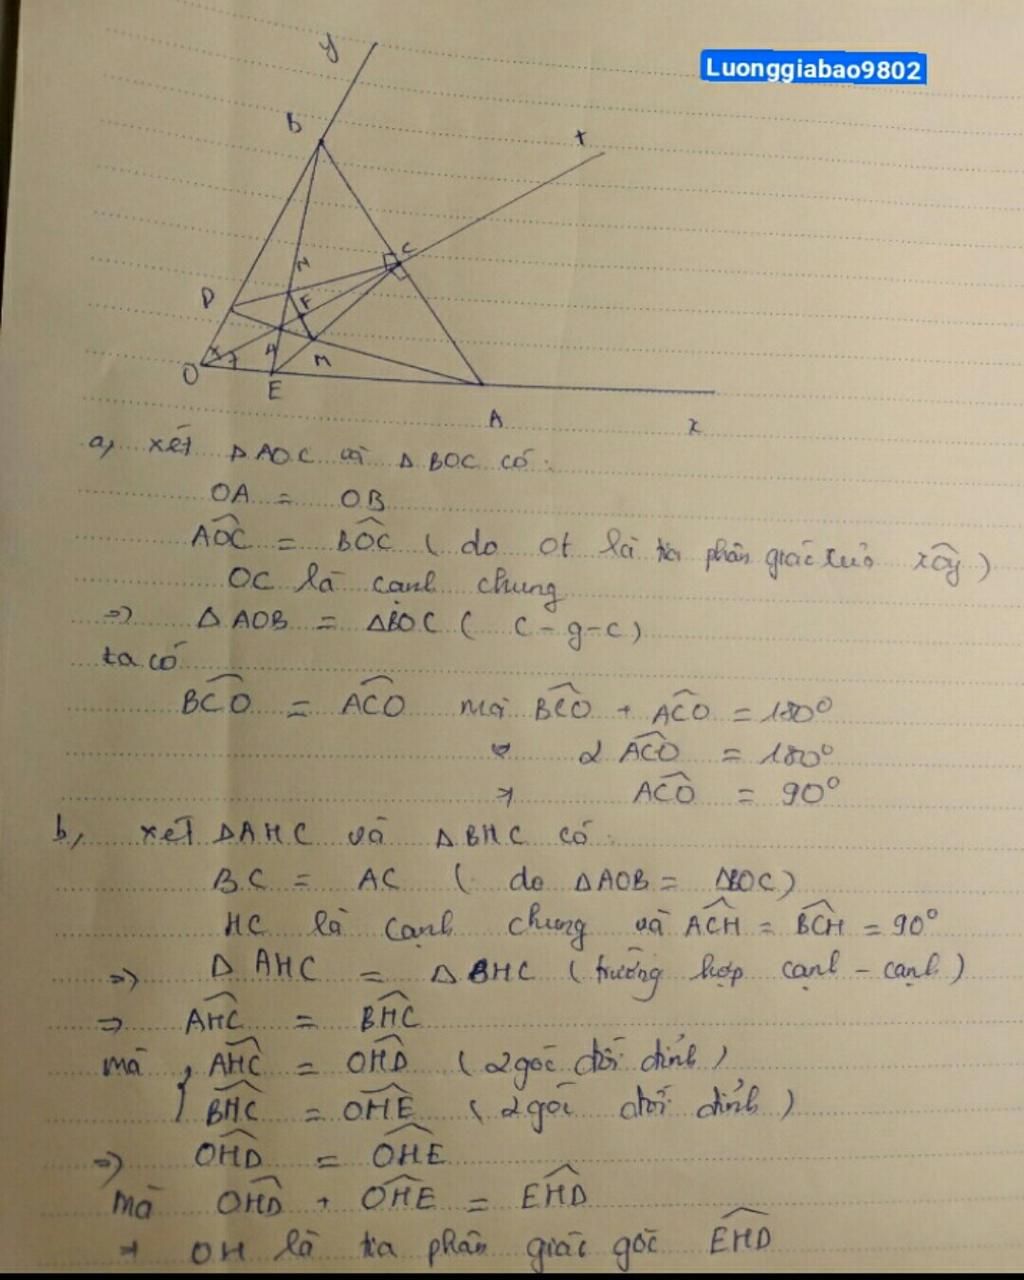 Luonggiabao9802
y
B
t
C
N
D
F
H
M
O
E
A
x
a, xét ΔAOC và ΔBOC có:
OA = OB
AOC^ = BOC^ ( do Ot là tia phân giác của xOy^ )
OC là cạnh chung
=> ΔAOB = ΔBOC ( c - g - c )
ta có
BCO^ = ACO^ mà BCO^ + ACO^ = 180°
2 ACO^ = 180°
=> ACO^ = 90°
b, xét ΔAHC và ΔBHC có:
BC = AC ( do ΔAOB = ΔBOC )
HC là cạnh chung và ACH^ = BCH^ = 90°
=> ΔAHC = ΔBHC ( trường hợp cạnh - cạnh )
=> AHC^ = BHC^
mà { AHC^ = OHD^ ( 2 góc đối đỉnh )
BHC^ = OHE^ ( 2 góc đối đỉnh )
=> OHD^ = OHE^
Mà OHD^ + OHE^ = EHD^
=> OH là tia phân giác góc EHD^